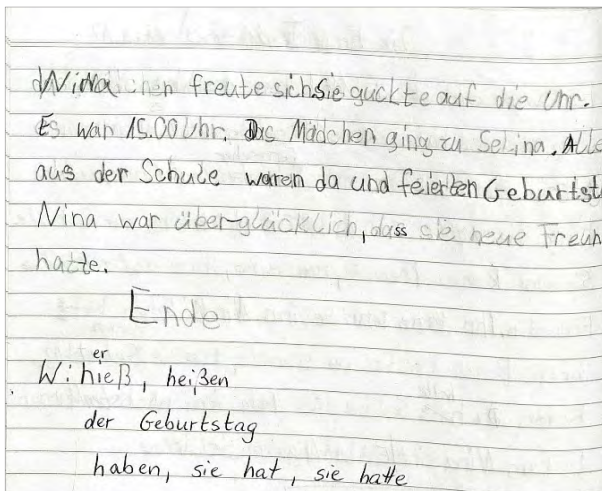 Nina freute sich Sie guckte auf die Uhr.
Es war 15.00 Uhr. Das Mädchen ging zu Selina. Alle
aus der Schule waren da und feierten Geburtst
Nina war überglücklich, dass sie neue Freun
hatte.
Ende
er
W: hieß, heißen
der Geburtstag
haben, sie hat, sie hatte